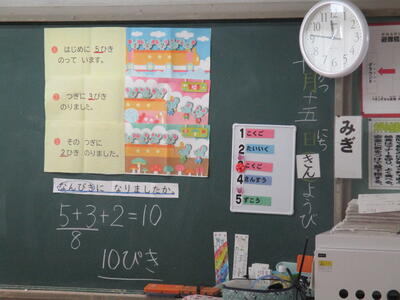 ① はじめに 5ひき
のって います。
② つぎに 3びき
のりました。
③ その つぎに
2ひき のりました。
なんびきに なりましたか。
5+3+2=10
8
10ぴき
1 こくご
2 たいいく
3 こくご
4 さんすう
5 ずこう
月十五日きんようび
にち
みぎ